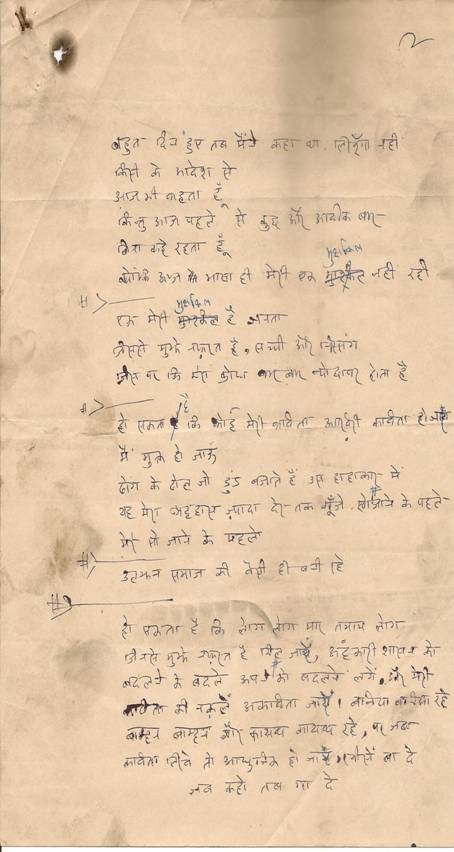 2
बहुत दिन हुए तब मैंने कहा था लिखूँगा नहीं
किसी के आदेश से
आज भी कहता हूँ
किन्तु आज पहले से कुछ और अधिक बार
बिना कहे रहता हूँ
क्योंकि आज भाषा ही मेरी एक मुश्किल नहीं रही
#
एक मेरी मुश्किल है जनता
जिससे मुझे नफ़रत है, सच्ची और निस्संग
जिस पर कि मेरा क्रोध बार बार न्योछावर होता है
#
हो सकता है कि कोई मेरी कविता आख़िरी कविता हो जाये
मैं मुक्त हो जाऊँ
ढोंग के ढोल जो डुंड बजाते हैं उस हाहाकार में
यह मेरा अट्टहास ज़्यादा देर तक गूँजे खो जाने के पहले
मेरे सो जाने के पहले
#
उलझन समाज की वैसी ही बनी रहे
#
हो सकता है कि लोग लोग मार तमाम लोग
जिनसे मुझे नफ़रत है मिल जायें, अहंकारी शासन को
बदलने के बदले अपने को बदलने लगें और मेरी
कविता की नक़लें अकविता जायें। बनिया बनिया रहे
बाम्हन बाम्हन और कायथ कायथ रहे, पर जब
कविता लिखे तो आधुनिक हो जाये। खीसें बा दे
जब कहो तब गा दे